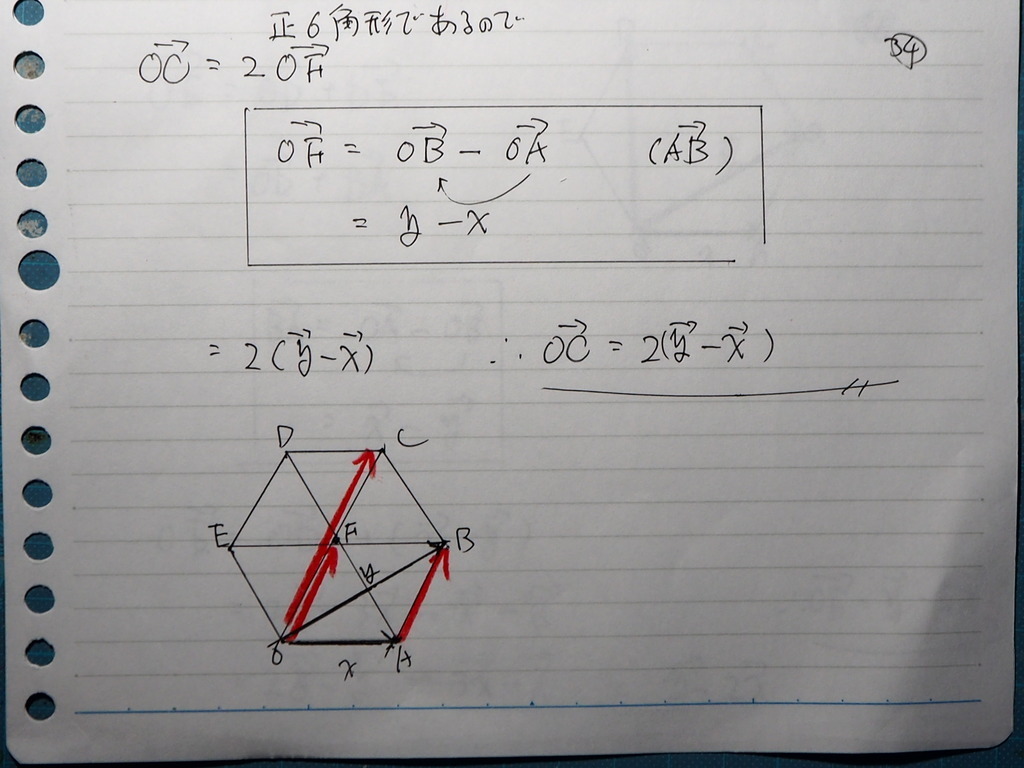 正6角形であるので
34
OC→ = 2 OF→
OF→ = OB→ - OA→ (AB→)
= y - x
= 2(y→ - x→) ∴ OC→ = 2(y→ - x→)
D C
E F B
y
O A
x